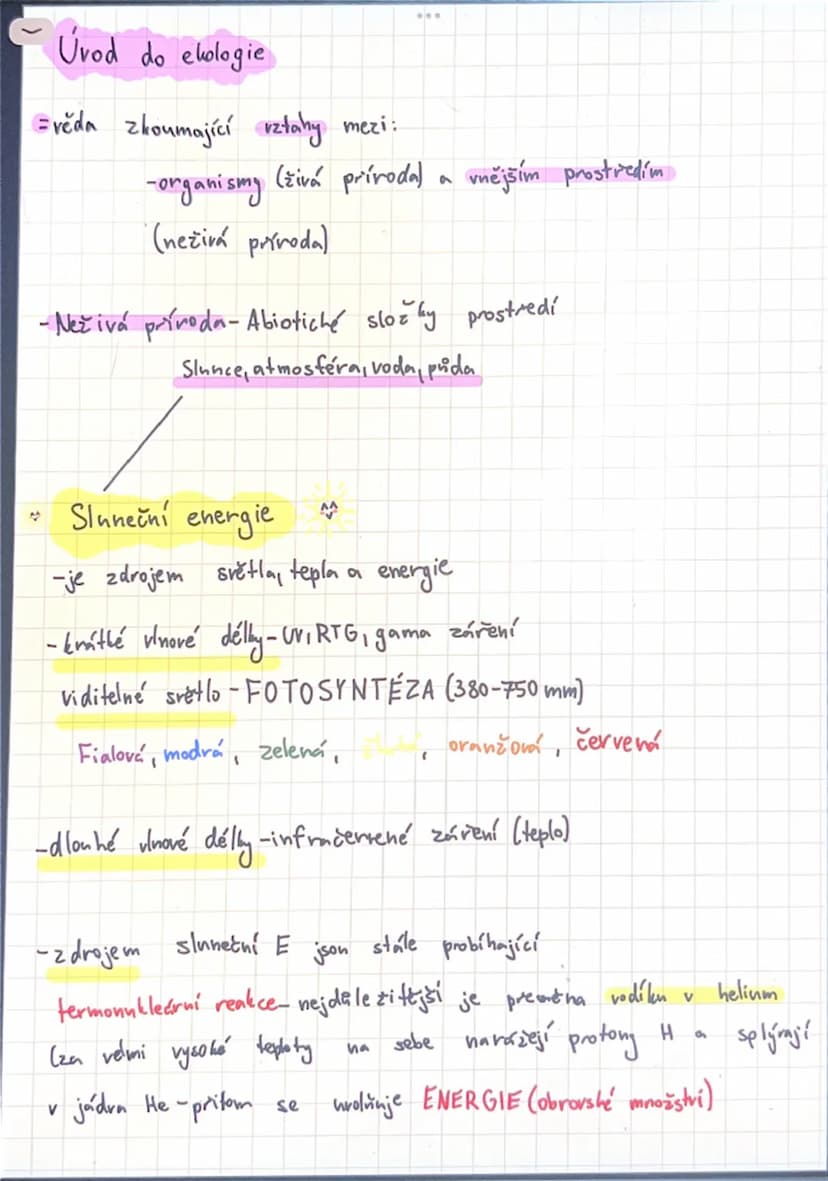 Úvod do ekologie
=věda zkoumající vztahy mezi:
-organismy (živá příroda) a vnějším prostředím
(neživá příroda)
-Neživá příroda-Abiotické složky prostředí
Slunce, atmosféra, voda, půda
Sluneční energie
-je zdrojem světla, tepla a energie
-krátké vlnové délky-UV, RTG, gama záření
viditelné světlo-FOTOSYNTÉZA (380-750 mm)
Fialová, modrá, zelená, žlutá, oranžová, červená
-dlouhé vlnové délky-infračervené záření (teplo)
-zdrojem sluneční E json stále probíhající
termonukleární reakce-nejdůležitější je přeměna vodíku v helium
(za velmi vysoké teploty na sebe narážejí protony H a splývají
v jádra He-přitom se uvolňuje ENERGIE (obrovské množství)